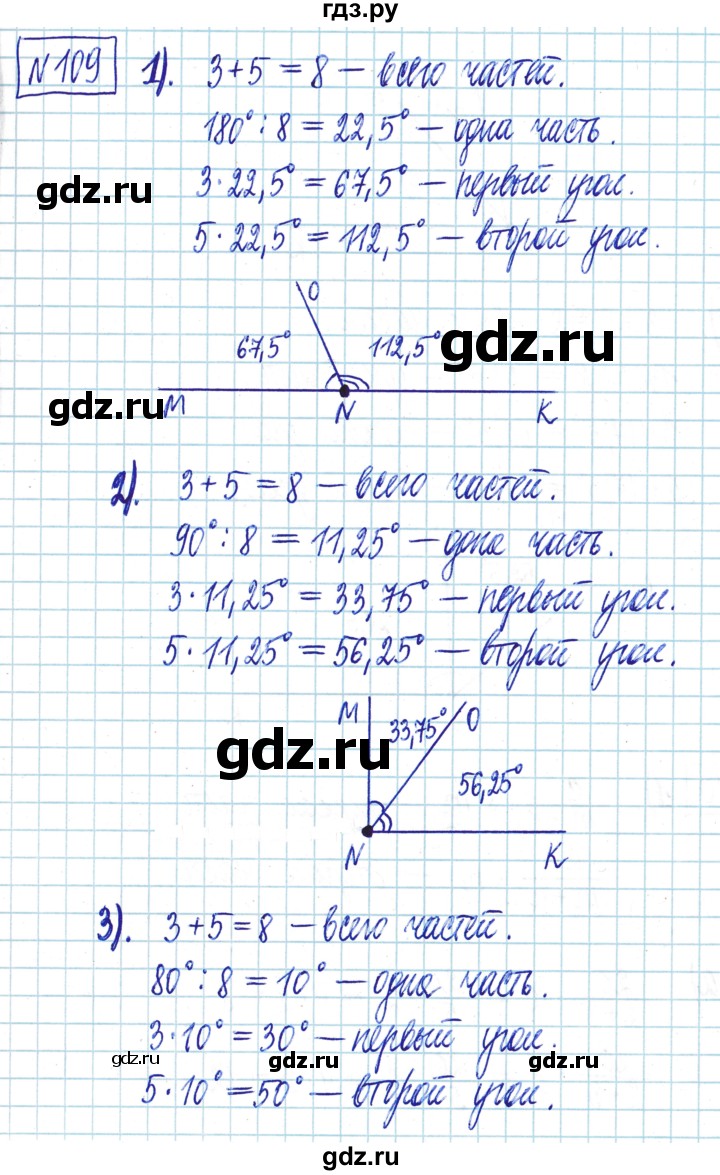 гдз.ру
№109 1). 3+5=8 – всего частей.
180° : 8 = 22,5° – одна часть.
gdz.ru
3·22,5° = 67,5° – первый угол.
5·22,5° = 112,5° – второй угол.
O
67,5° 112,5°
gdz.ru
gdz.ru
M N K
2). 3+5=8 – всего частей.
90° : 8 = 11,25° – одна часть.
3·11,25° = 33,75° – первый угол.
5·11,25° = 56,25° – второй угол.
M 33,75° O
gdz.ru
56,25°
N K
3). 3+5=8 – всего частей.
80° : 8 = 10° – одна часть.
3·10° = 30° – первый угол.
gdz.ru gdz.ru gdz.ru
5·10° = 50° – второй угол.
gdz.ru